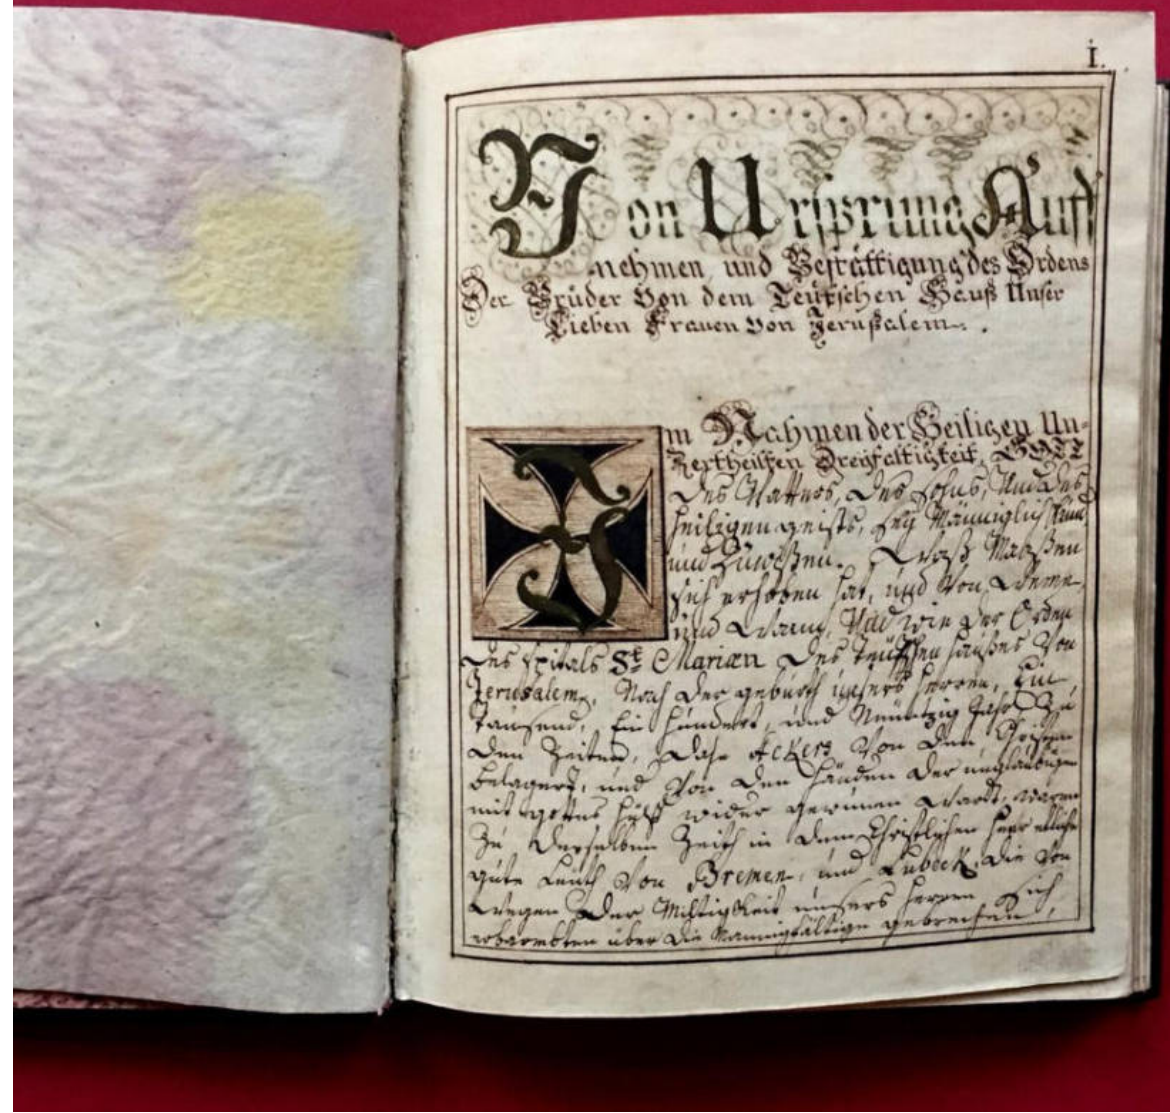 1.
Von Ursprung Auff
nehmen, und Bestättigung des Ordens
Der Brüder Von dem Teutschen Hauß Unser
Lieben Frauen Von Jerußalem.
Im Nahmen der Heiligen Un-
Zertheilten Dreyfaltigkeit, GOTT
Des Vatters, des Sohns, Und des
heiligen geists, sey Männiglich Kund
und Zuwißen. Waß Maßen
sich erhoben hat, und Von Weme,
und Wann, Und wie der Orden
des spitals St. Mariæn des teutschen haußes Von
Jerusalem, Nach der geburth unsers herren, Ein
Tausend, Ein hundert, und Neuntzig Jahr Zu
den Zeiten, Da Ackers Von den Christen
belagert, und Von den händen der unglaubigen
mit gottes hülff wider gewunen Wardt, waren
Zu derselben Zeith in dem Christlichen heer etliche
gute Leuth Von Bremen, und Lübeck, die Von
Wegen der Miltigkeit unsers herren sich
erbarmbten über die Mannigfältige gebrechen,